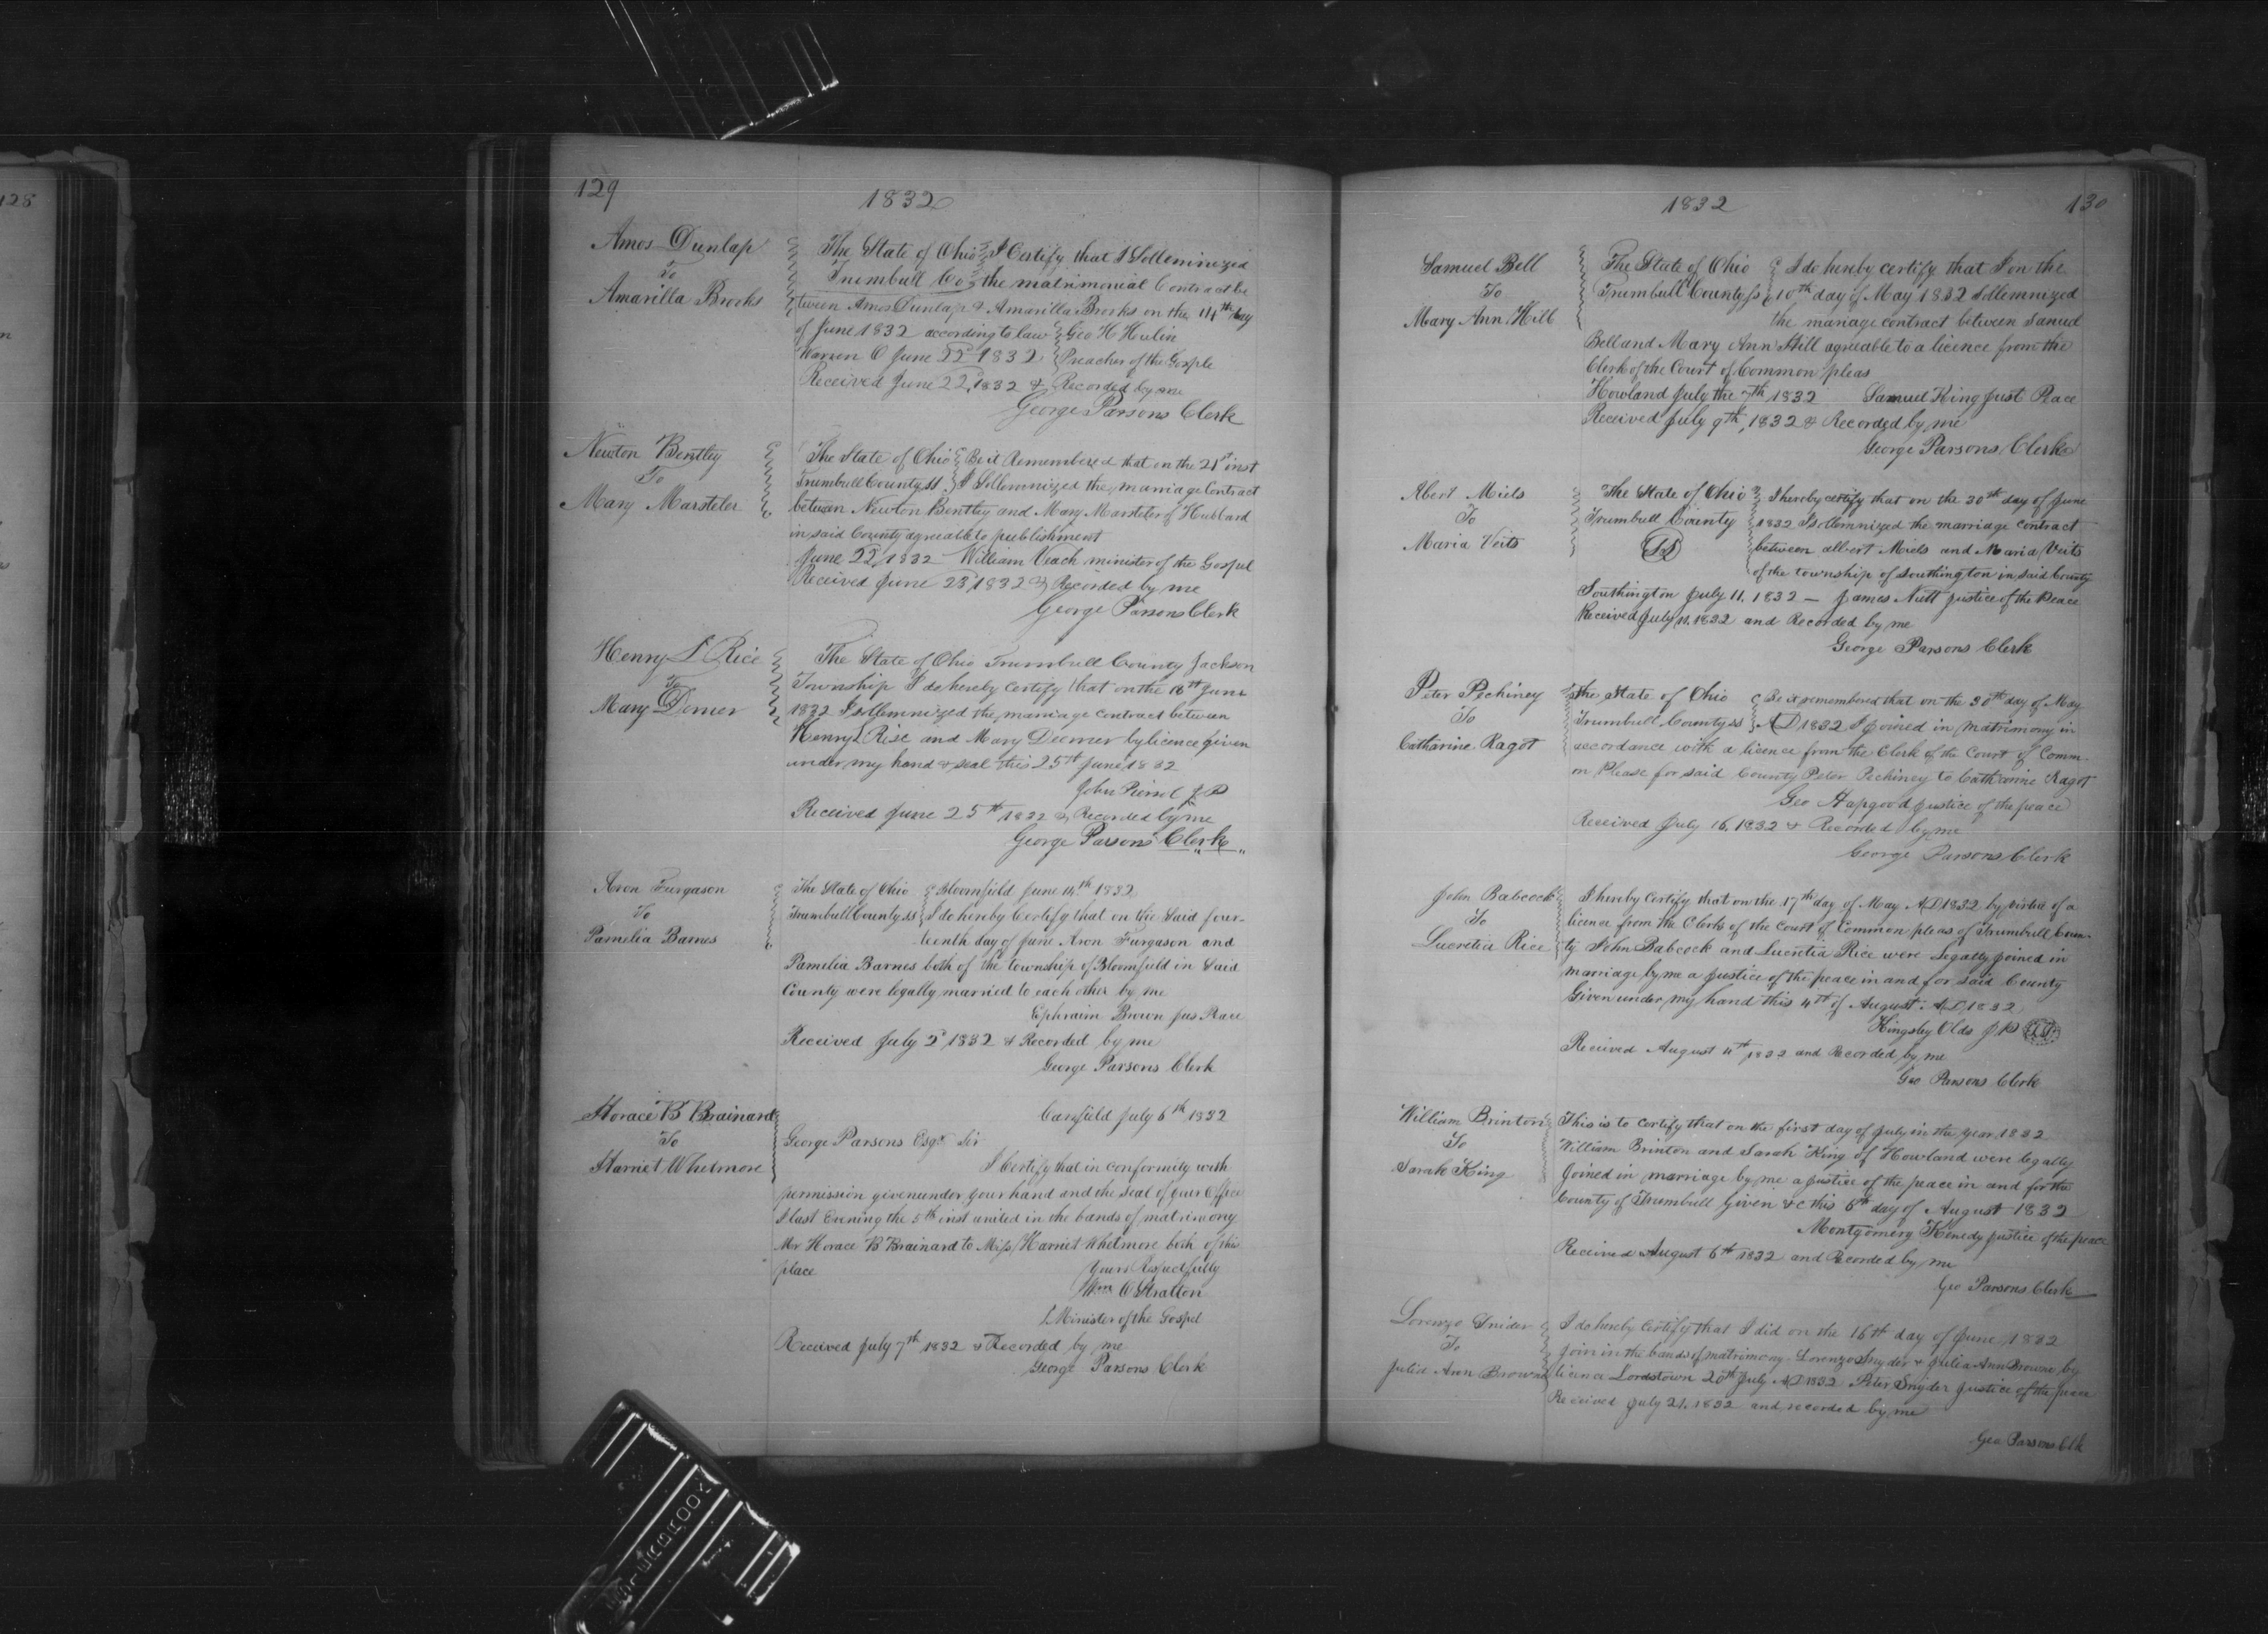 128
129
1832
Amos Dunlap
To
Amarilla Brooks
The State of Ohio I Certify that I Sollemnized
Trumbull Co the matrimonial Contract be
tween Amos Dunlap & Amarilla Brooks on the 14th day
of June 1832 according to law Geo H Hulin
Warren O June 22d 1832 Preacher of the Gosple
Received June 22, 1832 & Recorded by me
George Parsons Clerk
Newton Bentley
To
Mary Marsteler
The State of Ohio Be it Remembered that on the 21st inst
Trumbull County ss I Sollemnized the marriage Contract
between Newton Bentley and Mary Marsteler of Hubbard
in said County agreeable to publishment
June 22d 1832 William Veach minister of the Gospel
Received June 23d 1832 & Recorded by me
George Parsons Clerk
Henry L Rice
To
Mary Demer
The State of Ohio Trumbull County Jackson
Township I do hereby certify that on the 16th June
1832 I sollemnized the marriage contract between
Henry L Rise and Mary Deemer by licence given
under my hand & seal this 25th June 1832
John J P
Received June 25th 1832 & Recorded by me
George Parsons Clerk
Aron Furgason
To
Pamelia Barnes
The State of Ohio Bloomfield June 14th 1832
Trumbull County ss I do hereby Certify that on the Said four-
teenth day of June Aron Furgason and
Pamelia Barnes both of the township of Bloomfield in Said
County were legally married to each other by me
Ephraim Brown Jus Peace
Received July 2d 1832 & Recorded by me
George Parsons Clerk
Horace B Brainard
To
Harriet Whetmore
Canfield July 6th 1832
George Parsons Esqr Sir
I Certify that in conformity with
permission given under your hand and the seal of your Office
I last Evening the 5th inst united in the bands of matrimony
Mr Horace B Brainard to Miss Harriet Whetmore both of this
place Yours Respectfully
Wm O Stratton
Minister of the Gospel
Received July 7th 1832 & Recorded by me
George Parsons Clerk
1832
130
Samuel Bell
To
Mary Ann Hill
The State of Ohio I do hereby certify that I on the
Trumbull County ss 10th day of May 1832 Sollemnized
the mariage contract between Samuel
Bell and Mary Ann Hill agreable to a licence from the
Clerk of the Court of Common pleas
Howland July the 7th 1832 Samuel King Just Peace
Received July 9th, 1832 & Recorded by me
George Parsons Clerk
Abert Miels
To
Maria Veits
The State of Ohio I hereby certify that on the 30th day of June
Trumbull County 1832 I sollemnized the marriage contract
between albert Miels and Maria Veits
of the township of Southington in said County
Southington July 11. 1832 — James Nutt justice of the Peace
Received July 11. 1832 and Recorded by me
George Parsons Clerk
Peter Pechiney
To
Catharine Ragot
The State of Ohio Be it remembered that on the 30th day of May
Trumbull County ss AD 1832 I joined in matrimony in
accordance with a licence from the Clerk of the Court of Comm-
on Please for said County Peter Pechiney to Catharine Ragot
Geo Hapgood justice of the peace
Received July 16, 1832 & Recorded by me
George Parsons Clerk
John Babcock
To
Lucretia Rice
I hereby certify that on the 17th day of May AD 1832 by virtue of a
licence from the Clerk of the Court of Common pleas of Trumbull Coun-
ty John Babcock and Lucretia Rice were Legally joined in
marriage by me a justice of the peace in and for said County
Given under my hand this 4th of August AD 1832
Kingsley Olds J P
Received August 4th 1832 and Recorded by me
Geo Parsons Clerk
William Brinton
To
Sarah King
This is to certify that on the first day of July in the year 1832
William Brinton and Sarah King of Howland were legally
Joined in marriage by me a justice of the peace in and for the
County of Trumbull Given &c this 6th day of August 1832
Montgomery Kenedy justice of the peace
Received August 6th 1832 and Recorded by me
Geo Parsons Clerk
Lorenzo Snider
To
Julia Ann Browne
I do hereby certify that I did on the 16th day of June 1832
join in the bands of matrimony Lorenzo Snyder & Julia Ann Browne by
licence Lordstown 20th July AD 1832 Peter Snyder justice of the peace
Received July 21. 1832 and recorded by me
Geo Parsons Clk